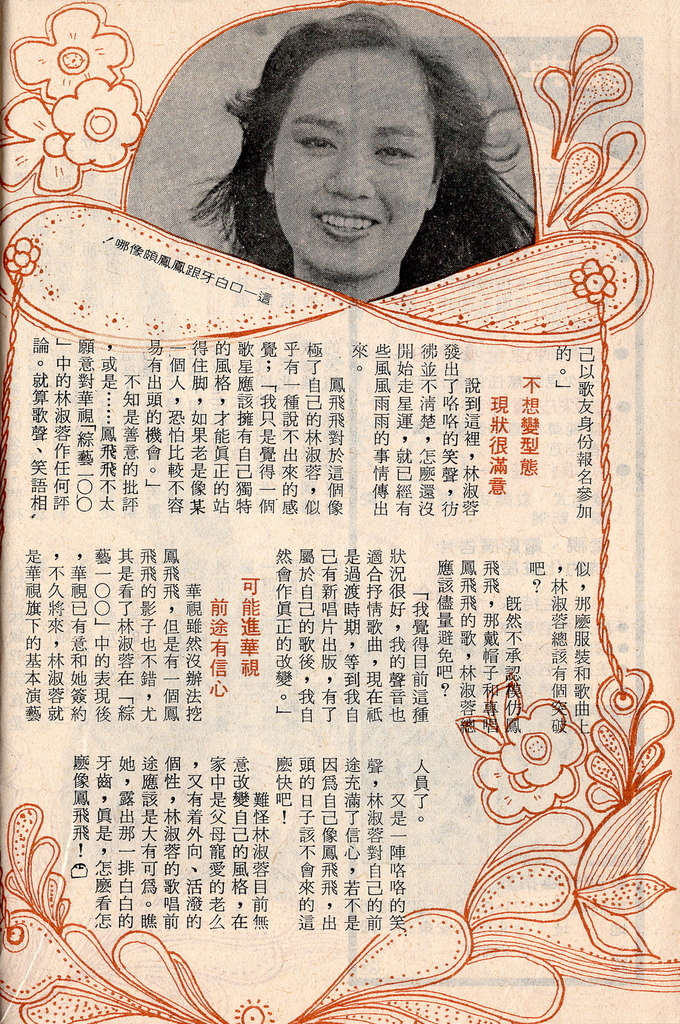 這一口白牙跟鳳鳳頗像哪！
己以歌友身份報名參加
的。」
不想變型態
現狀很滿意
說到這裡，林淑蓉
發出了咯咯的笑聲，彷
彿並不清楚，怎麼還沒
開始走星運，就已經有
些風風雨雨的事情傳出
來。
鳳飛飛對於這個像
極了自己的林淑蓉，似
乎有一種說不出來的感
覺；「我只是覺得一個
歌星應該擁有自己獨特
的風格，才能眞正的站
得住脚，如果老是像某
一個人，恐怕比較不容
易有出頭的機會。」
不知是善意的批評
，或是……鳳飛飛不太
願意對華視「綜藝一〇〇
」中的林淑蓉作任何評
論。就算歌聲、笑語相
似，那麼服裝和歌曲上
，林淑蓉總該有個突破
吧？
旣然不承認模仿鳳
飛飛，那戴帽子和專唱
鳳飛飛的歌，林淑蓉總
應該儘量避免吧？
「我覺得目前這種
狀況很好，我的聲音也
適合抒情歌曲，現在祇
是過渡時期，等到我自
己有新唱片出版，有了
屬於自己的歌後，我自
然會作眞正的改變。」
可能進華視
前途有信心
華視雖然沒辦法挖
鳳飛飛，但是有一個鳳
飛飛的影子也不錯，尤
其是看了林淑蓉在「綜
藝一〇〇」中的表現後
，華視已有意和她簽約
，不久將來，林淑蓉就
是華視旗下的基本演藝
人員了。
又是一陣咯咯的笑
聲，林淑蓉對自己的前
途充滿了信心，若不是
因爲自己像鳳飛飛，出
頭的日子該不會來的這
麼快吧！
難怪林淑蓉目前無
意改變自己的風格，在
家中是父母寵愛的老么
，又有着外向、活潑的
個性，林淑蓉的歌唱前
途應該是大有可爲。瞧
她，露出那一排白白的
牙齒，眞是，怎麼看怎
麼像鳳飛飛！